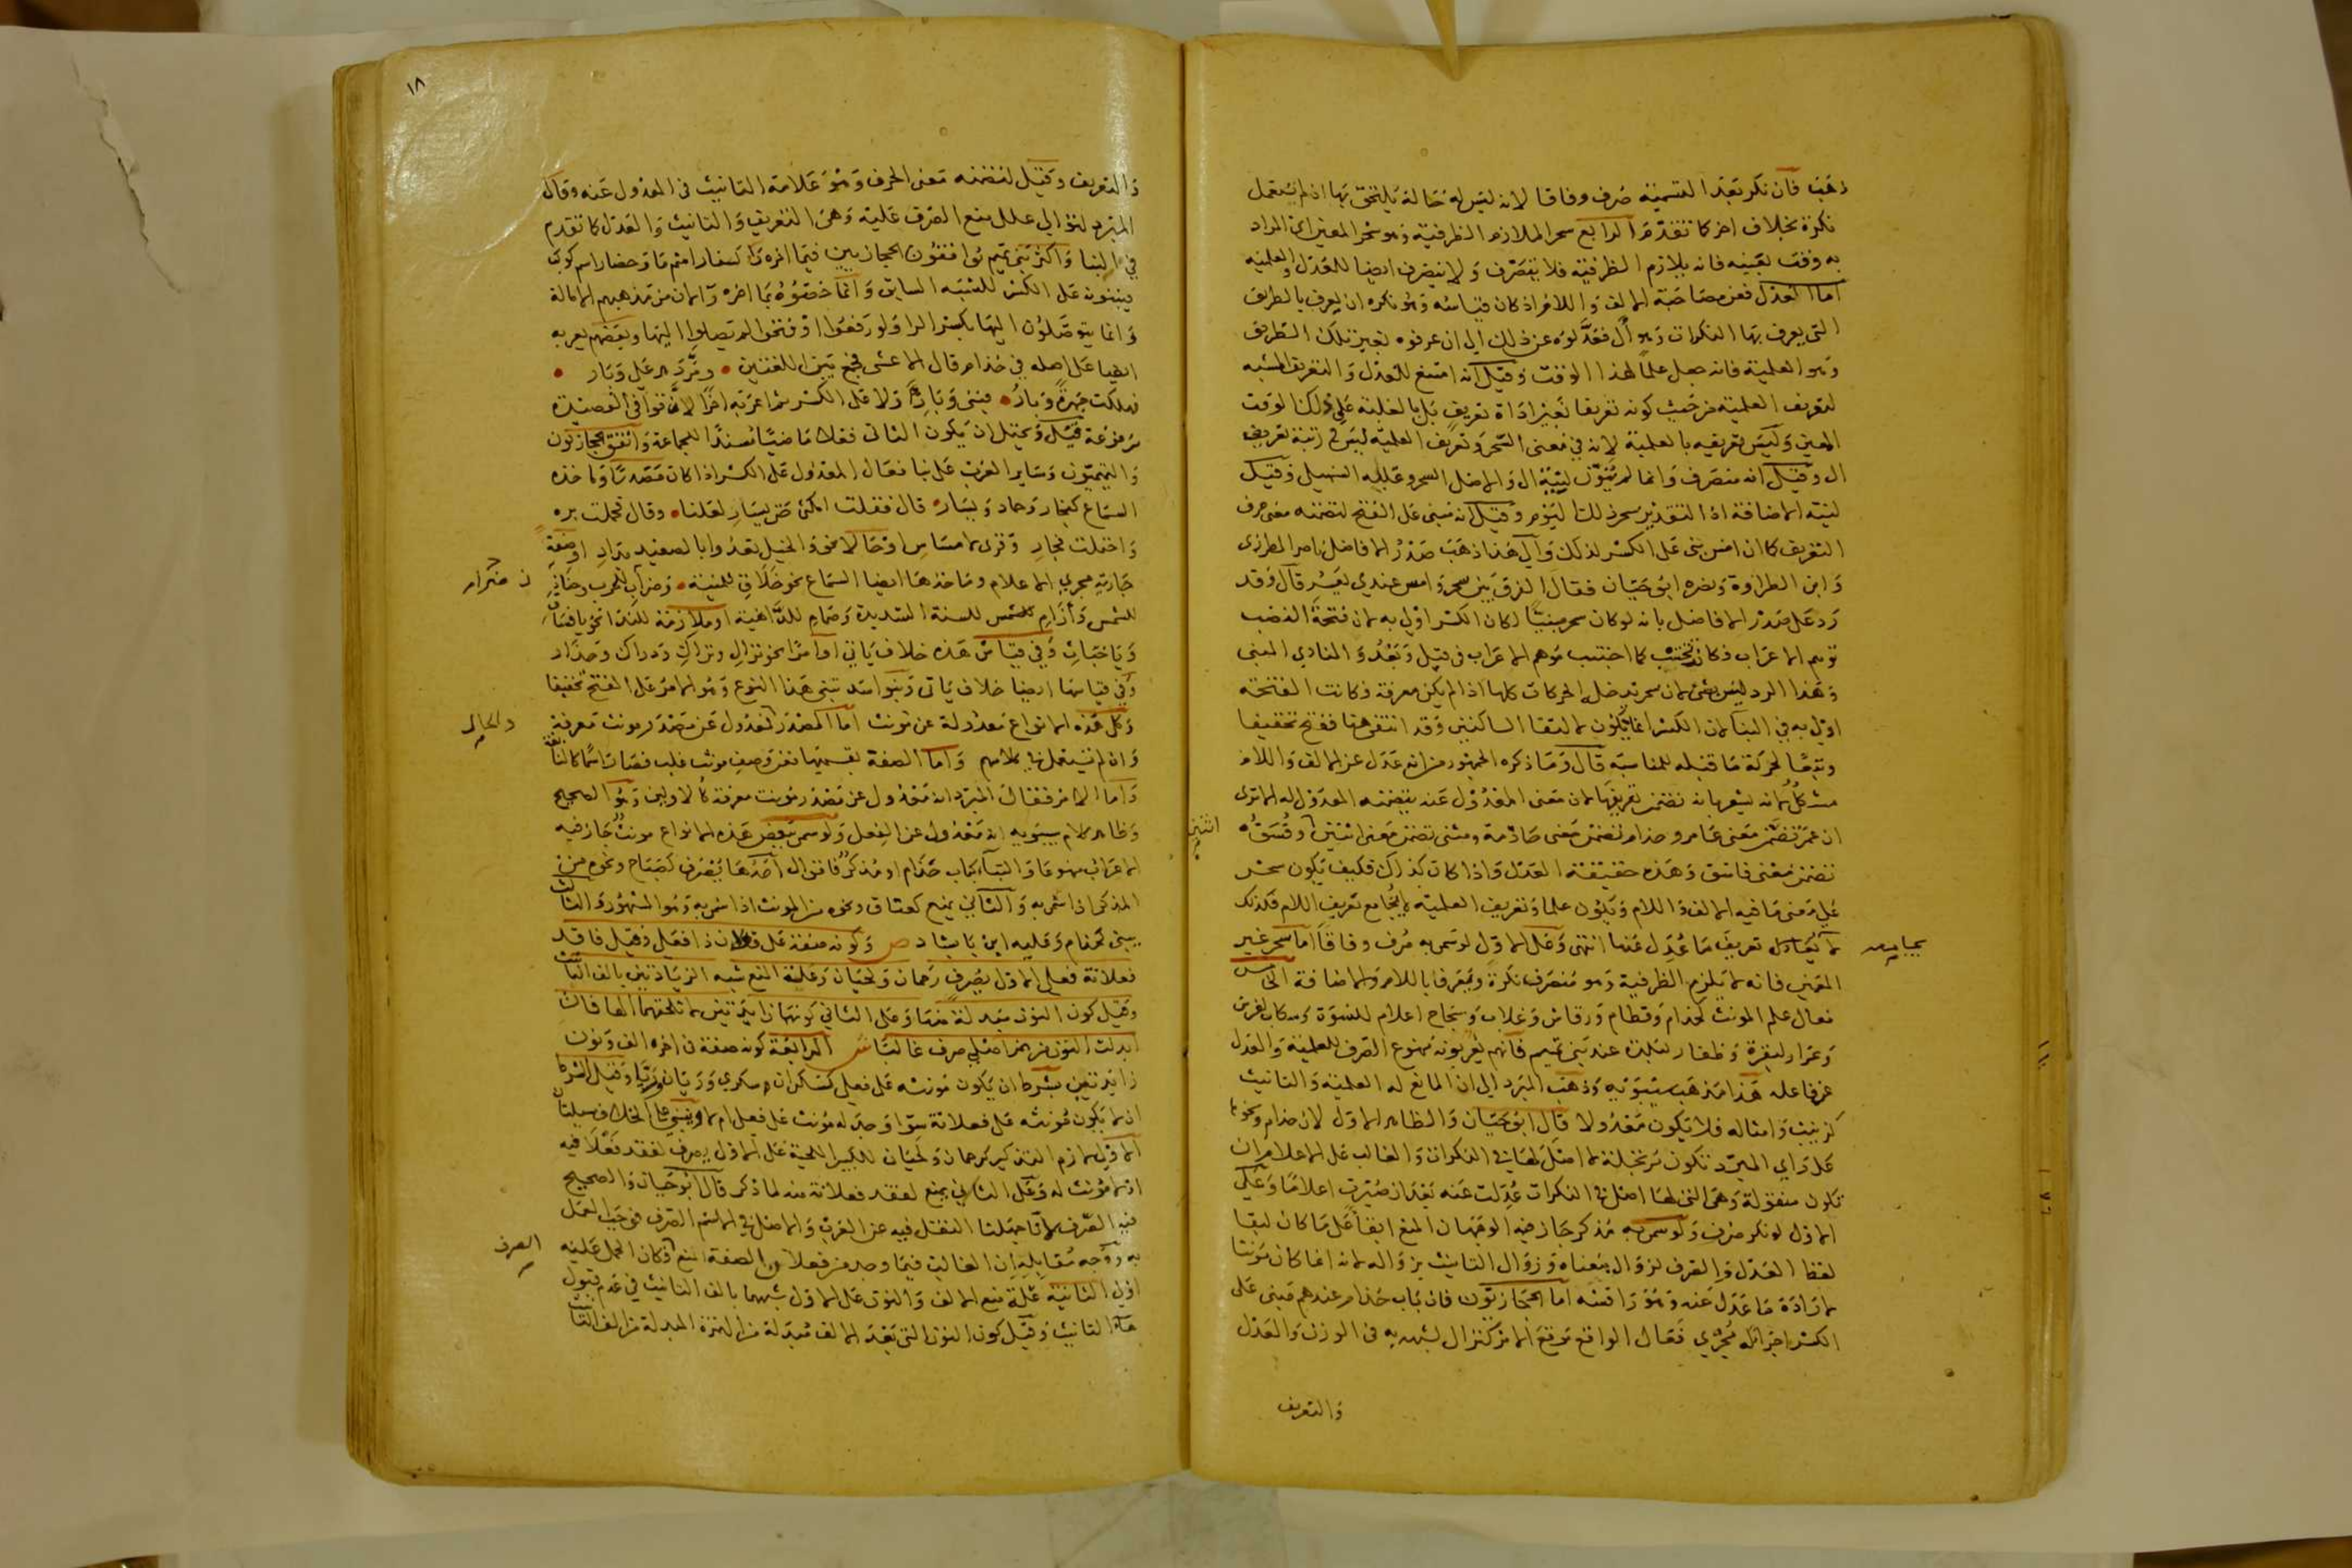 ذهب فان نكر بعد التسمية صرف وفاقا لانه ليس له حالة يلتحق بها اذ لم يستعمل
نكرة بخلاف اخر كما تقدم الرابع سحر الملازم الظرفية وهو سحر المعين اي المراد
به وقت بعينه فانه يلازم الظرفية فلا يتصرف ولا ينصرف ايضا للعدل والعلمية
اما العدل فعن مصاحبة الالف واللام اذ كان قياسه وهو نكرة ان يعرف بالطريق
التي يعرف بها النكرات وهو أل فعدلوه عن ذلك الي ان عرفوه بغير تلك الطريق
وهو العلمية فانه جعل علما لهذا الوقت وقيل انه امتنع للعدل والتعريف المشبه
لتعريف العلمية من حيث كونه تعريفا بغير اداة تعريف بل بالغلبة على ذلك الوقت
المعين وليس تعريفه بالعلمية لانه في معنى السحر وتعريف العلمية ليس في رتبة تعريف
ال وقيل انه منصرف وانما لم ينون لنية ال والاصل السحر وعليه السهيلي وقيل
لنية الاضافة اذ التقدير سحر ذلك اليوم وقيل انه مبني على الفتح لتضمنه معنى حرف
التعريف كما ان امس بني على الكسر لذلك والي هذا ذهب صدر الافاضل ناصر المطرزي
وابن الطراوة ونصره ابو حيان فقال الفرق بين سحر وامس عندي يعسر قال وقد
رد على صدر الافاضل بانه لو كان سحر مبنيا لكان الكسر اولى به لان فتحة النصب
توهم الاعراب فكان يجتنب كما اجتنب موهم الاعراب في قبل وبعد والمنادي المبني
وهذا الرد ليس بشئ لان سحر تدخله الحركات كلها اذا لم يكن معرفة فكانت الفتحة
اولى به في البنا لان الكسر انما يكون لالتقا الساكنين وقد انتفى هنا ففتح تخفيفا
وتبعا لحركة ما قبله للمناسبة قال وما ذكره الجمهور من انه عدل عن الالف واللام
مشكل لانه يشعر بانه تضمن تعريفها لان معنى المعدول عنه يتضمنه المعدول له الا ترى
ان عمر تضمن معنى عامر وحذام تضمن معنى حاذمة ومثنى تضمن معنى اثنين وفسق
تضمن معنى فاسق وهذه حقيقة العدل واذا كان كذلك فكيف يكون سحر
على معنى ما فيه الالف واللام ويكون علما وتعريف العلمية لا يجامع تعريف اللام فكذلك
لا يعادل تعريف ما عدل عنها انتهى وعلى الاول لو سمي به صرف وفاقا اما سحر غير
المعين فانه لا يلزم الظرفية وهو منصرف نكرة ومعرفا باللام والاضافة الخامس
فعال علم المونث كحذام وقطام ورقاش وغلاب وسجاح اعلام للنسوة وسكاب لفرس
وعرار لبقرة وظفار لبلدة عند بني تميم فانهم يعربونه ممنوع الصرف للعلمية والعدل
عن فاعلة هذا مذهب سيبويه وذهب المبرد الي ان المانع له العلمية والتانيث
كزينب وامثاله فلا تكون معدولا قال ابو حيان والظاهر الاول لان حذام ونحوها
على راي المبرد تكون مرتجلة لا اصل لها في النكرات والغالب على الاعلام ان
تكون منقولة وهي التي لها اصل في النكرات عدلت عنه بعد ان صيرت اعلاما وعلى
الاول لو نكر صرف ولو سمي به مذكر جاز فيه الوجهان المنع ابقاء على ما كان لبقا
لفظ العدل والصرف لزوال معناه وزوال التانيث بزواله لانه انما كان مونثا
لارادة ما عدل عنه وهو راقشة اما الحجازيون فان باب حذام عندهم مبني على
الكسر اجرا له مجرى فعال الواقع موقع الامر كنزال لشبهه به في الوزن والعدل
والتعريف
اثنين
يجامعه
١٨
والتعريف وقيل لتضمنه معنى الحرف وهو علامة التانيث في المعدول عنه وقال
المبرد لتوالي علل منع الصرف عليه وهي التعريف والتانيث والعدل كما تقدم
في البنا واكثر بني تميم يوافقون الحجازيين فيما اخره را كسفار اسم ما وحضار اسم كوكب
فيبنونه على الكسر للشبه السابق وانما خصوه بما اخره را لان من مذهبهم الامالة
وانما يتوصلون اليها بكسر الرا ولو رفعوا او فتحوا لم يصلوا اليها وبعضهم يعربه
ايضا على اصله في حذام قال الاعشى فجمع بين اللغتين • ومر دهر على وبار •
فهلكت جهرة وبار • فبنى وبار اولا على الكسر ثم اعربه اخرا لان قوافي القصيدة
مرفوعة قيل ويحتمل ان يكون الثاني فعلا ماضيا مسندا للجماعة واتفق الحجازيون
والتميميون وساير العرب على بنا فعال المعدول على الكسر اذا كان مصدرا وماخذه
السماع كفجار وحماد ويسار • قال فقلت امكثي حتى يسار لعلنا • وقال فحملت بره
واحتملت فجار وقرى لا مساس او حالا نحو والخيل تعدوا بالصعيد بداد او صفة
جارية مجري الاعلام وماخذها ايضا السماع نحو حلاق للمنية • وضراب للحرب وحناذ
للشمس وأزام للسنة الشديدة وصمام للداهية او ملازمة للندا نحو يا فساق
ويا خباث وفي قياس هذه خلاف ياتي او امرا نحو نزال وتراك ودراك وحذار
وفي قياسها ايضا خلاف ياتى وبنو اسد تبنى هذا النوع وهو الامر على الفتح تخفيفا
وكل هذه الانواع معدولة عن مونث اما المصدر فمعدول عن مصدر مونث معرفة
وان لم يستعمل في كلامهم واما الصفة بقسميها فعن وصف مونث غلب فصار اسما كالنابغة
واما الامر فقال المبرد انه معدول عن مصدر مونث معرفة كالاولين وهو الصحيح
وظاهر كلام سيبويه انه معدول عن الفعل ولو سمي ببعض هذه الانواع مونث جاز فيه
الاعراب ممنوعا والبنا كباب حذام او مذكر فاقوال احدها يصرف كصباح ونحوه من
المذكر اذا سمي به والثاني يمنع كعناق ونحوه من المونث اذا سمي به وهو المشهور والثالث
يبنى كحذام وعليه ابن بابشاد ص وكونه صفة على فعلان ذا فعلى وقيل فاقد
فعلانة فعلى الاول يصرف رحمان ولحيان وعلة المنع شبه الزيادتين بالف التانيث
وقيل كون النون مبدلة منها وعلى الثاني كونهما زايدتين لا تلحقهما الها فان
ابدلت النون من حرف اصلي صرف غالبا ش الرابعة كونه صفة في اخره الف ونون
زايدتين بشرط ان يكون مونثه على فعلى كسكران وسكري وريان وريا وقيل الشرط
ان لا يكون مونثه على فعلانة سوا وجد له مونث على فعلى ام لا وينبني على الخلاف مسيلتان
الاولى لازم التذكير كرحمان ولحيان للكبير اللحية على الاول يصرف لفقد فعلى فيه
اذ لا مونث له وعلى الثاني يمنع لفقد فعلانة منه لما ذكر قال ابو حيان والصحيح
فيه الصرف لانا جهلنا النقل فيه عن العرب والاصل في الاسم الصرف فوجب العمل
به ووجه مقابله ان الغالب فيما وجد من فعلان الصفة المنع فكان الحمل عليه
اولى الثانية علة منع الالف والنون على الاول شبههما بالف التانيث في عدم قبول
هاء التانيث وقيل كون النون التي بعد الالف مبدلة من الهمزة المبدلة من الف التانيث
والحال
الصرف